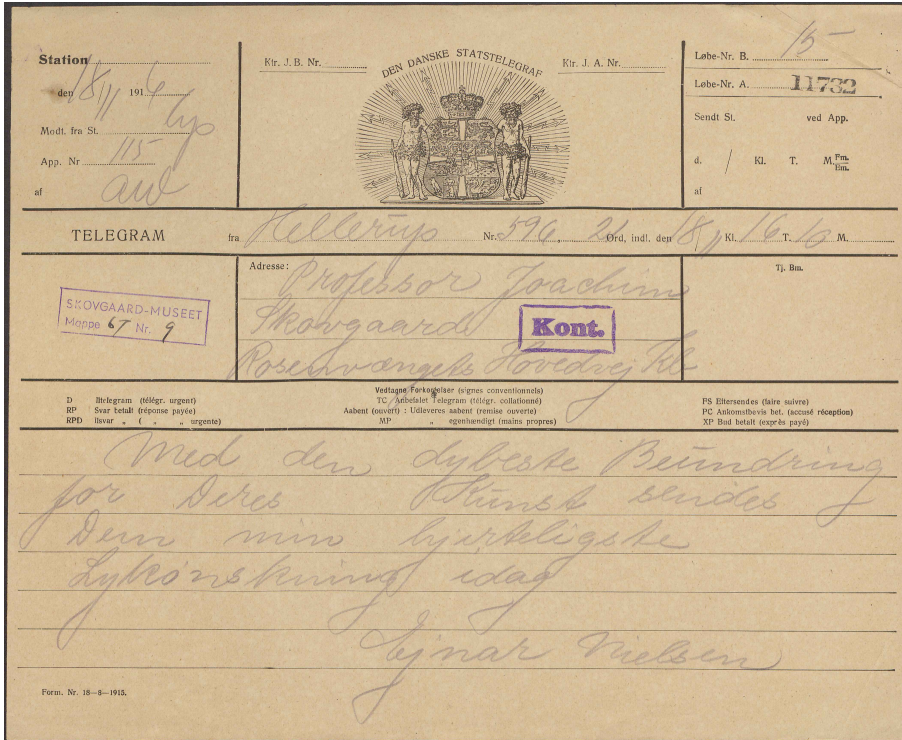 Station
den 18/11 1916
Modt. fra St. Lyp
App. Nr 115
af
Ktr. J. B. Nr.
DEN DANSKE STATSTELEGRAF
Ktr. J. A. Nr.
Løbe-Nr. B. 15
Løbe-Nr. A. 11732
Sendt St. ved App.
d. / Kl. T. M. Fm. Em.
af
TELEGRAM fra Hellerup Nr. 596, 21 Ord, indl. den 18/11 Kl. 16 T. 10 M.
SKOVGAARD-MUSEET
Mappe 67 Nr. 9
Adresse:
Professor Joachim
Skovgaard
Rosenvængets Hovedvej Kb
Kont.
Tj. Bm.
Vedtagne Forkortelser (signes conventionnels)
D Iltelegram (télégr. urgent)
RP Svar betalt (réponse payée)
RPD Ilsvar „ ( „ „ urgente)
TC Anbefalet Telegram (télégr. collationné)
Aabent (ouvert) : Udleveres aabent (remise ouverte)
MP „ egenhændigt (mains propres)
FS Eftersendes (faire suivre)
PC Ankomstbevis bet. (accusé réception)
XP Bud betalt (exprès payé)
Med den dybeste Beundring
for Deres Kunst sendes
Dem min hjerteligste
Lykønskning idag
Ejnar Nielsen
Form. Nr. 18—8—1915.